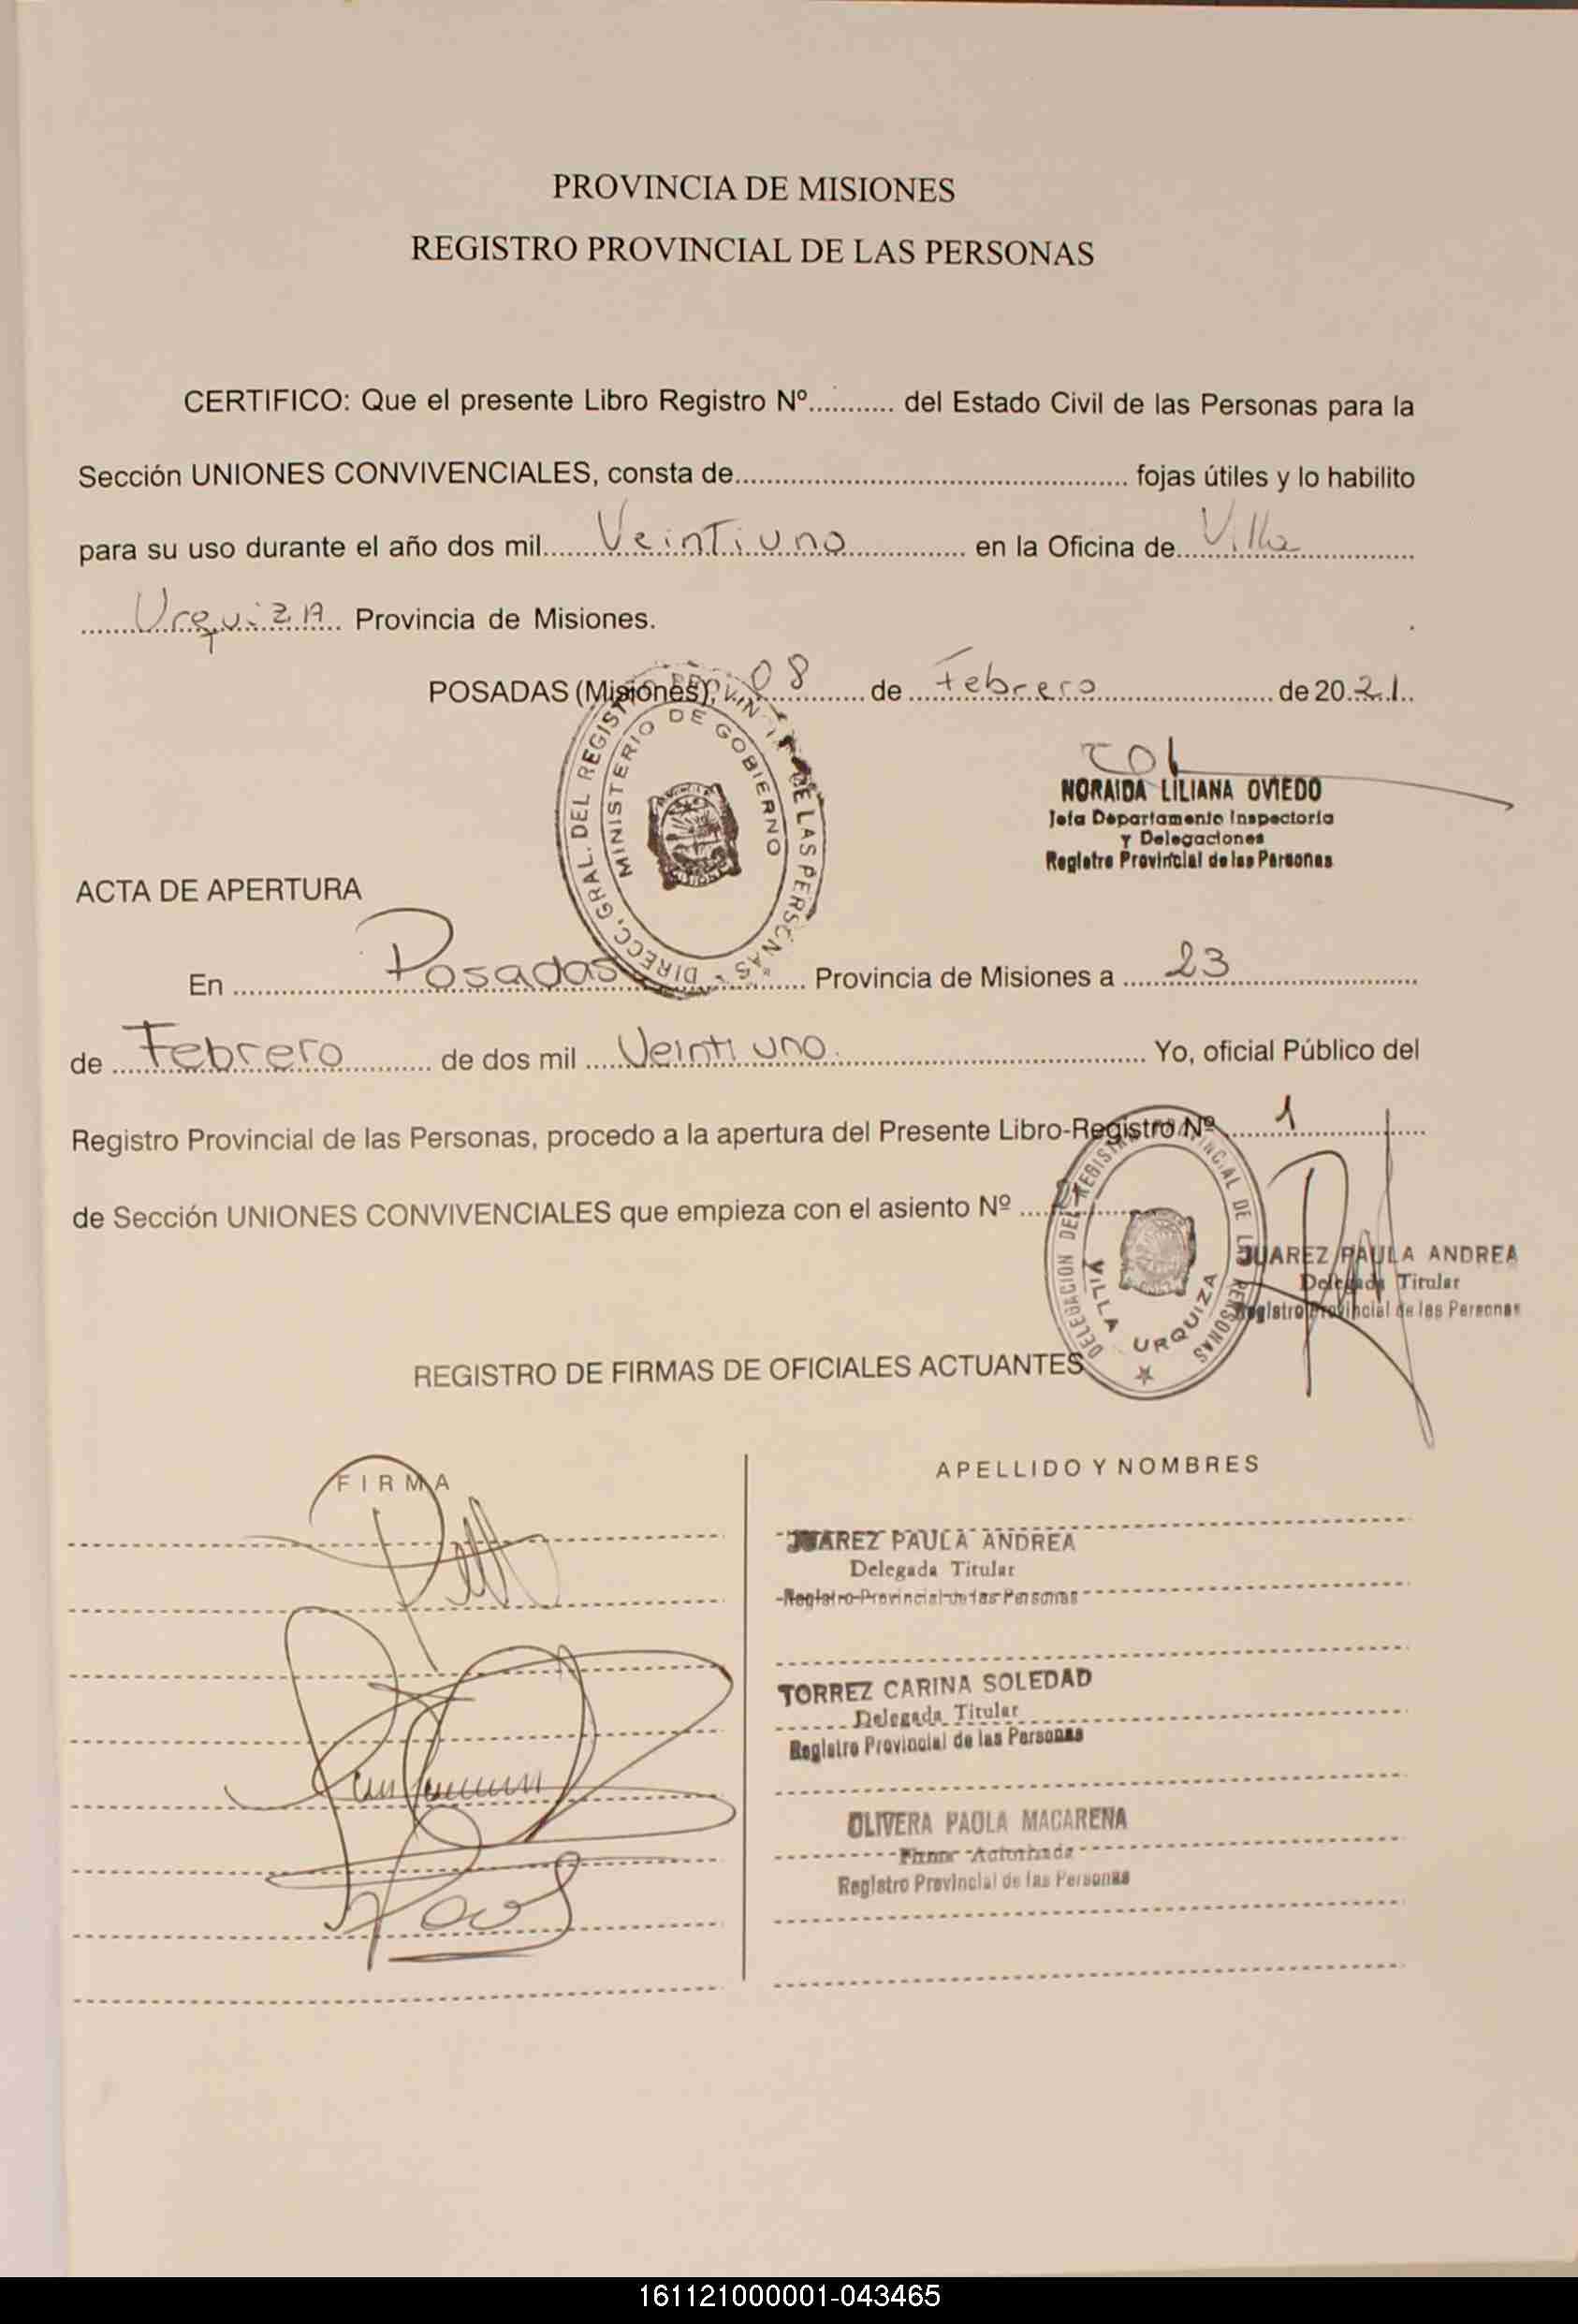 PROVINCIA DE MISIONES
REGISTRO PROVINCIAL DE LAS PERSONAS
CERTIFICO: Que el presente Libro Registro Nº........... del Estado Civil de las Personas para la
Sección UNIONES CONVIVENCIALES, consta de.................................................. fojas útiles y lo habilito
para su uso durante el año dos mil Veintiuno en la Oficina de Villa
Urquiza Provincia de Misiones.
POSADAS (Misiones), 08 de Febrero de 2021.
DIRECC. GRAL. DEL REGISTRO PROVINCIAL DE LAS PERSONAS
MINISTERIO DE GOBIERNO
NORAIDA LILIANA OVIEDO
Jefa Departamento Inspectoria
Y Delegaciones
Registro Provincial de las Personas
ACTA DE APERTURA
En Posadas Provincia de Misiones a 23
de Febrero de dos mil Veintiuno. Yo, oficial Público del
Registro Provincial de las Personas, procedo a la apertura del Presente Libro-Registro Nº 1
de Sección UNIONES CONVIVENCIALES que empieza con el asiento Nº
DELEGACION DEL REGISTRO PROVINCIAL DE LAS PERSONAS
VILLA URQUIZA
JUAREZ PAULA ANDREA
Delegada Titular
Registro Provincial de las Personas
REGISTRO DE FIRMAS DE OFICIALES ACTUANTES
FIRMA
APELLIDO Y NOMBRES
JUAREZ PAULA ANDREA
Delegada Titular
Registro Provincial de las Personas
TORREZ CARINA SOLEDAD
Delegada Titular
Registro Provincial de las Personas
OLIVERA PAOLA MACARENA
Registro Provincial de las Personas
161121000001-043465